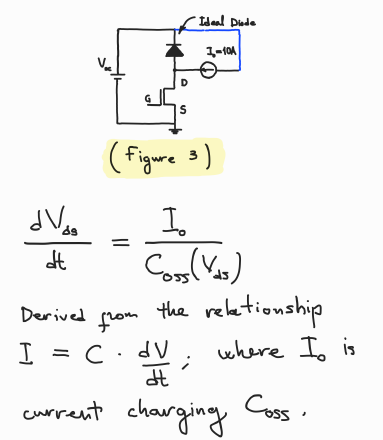 Ideal Diode
I₀=10A
V_DC
D
G
S
(Figure 3)
dV_ds/dt = I₀/C_oss(V_ds)
Derived from the relationship
I = C · dV/dt ; where I₀ is
current charging C_oss.